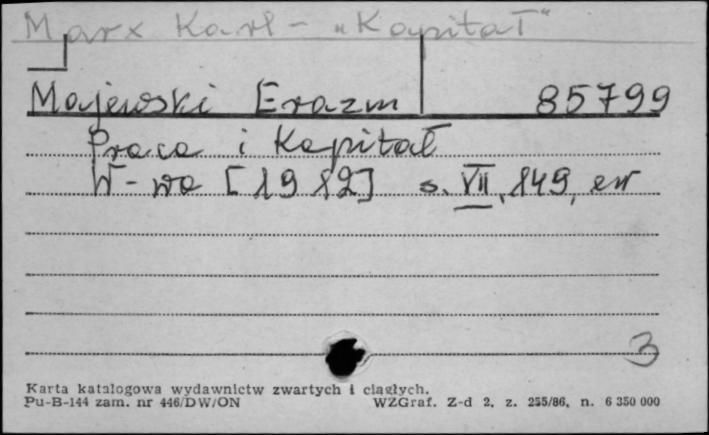 Marx Karl - „Kapitał"
Majewski Erazm 85799
Praca i Kapitał
W-wa [1912] s. VII, 149, err
3
Karta katalogowa wydawnictw zwartych i ciągłych.
Pu-B-144 zam. nr 446/DW/ON WZGraf. Z-d 2, z. 255/86, n. 6 350 000